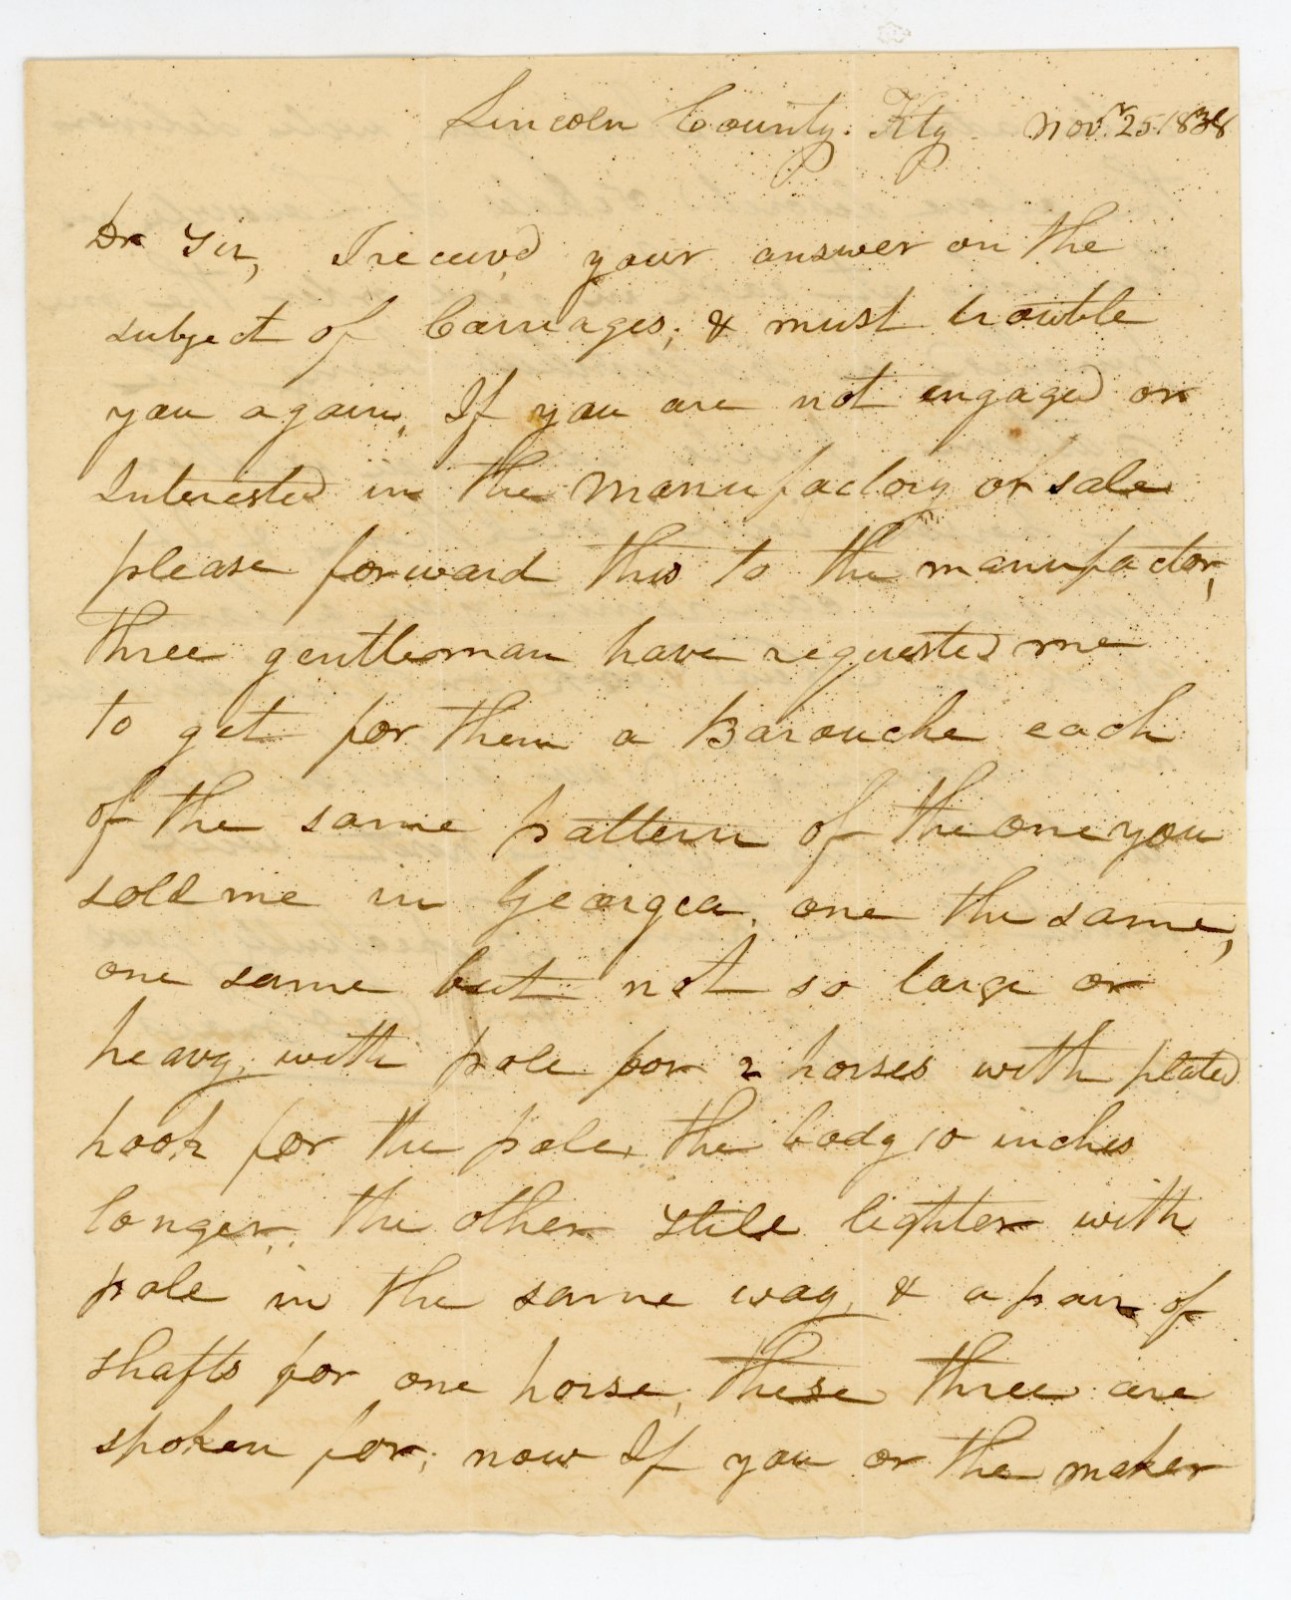 Lincoln County. Kty Novr. 25. 1838
Dr Sir, I receivd your answer on the
subject of Carriages; & must trouble
you again, If you are not engaged or
Interested in the manufactory or sale
please forward this to the manufactor,
Three gentleman have requested me
to get for them a Barouche each
of the same pattern of the one you
sold me in Georgea. one the same,
one same but not so large or
heavy; with pole for 2 horses with plated
hook for the pole, the body 10 inches
longer,. the other still lighter with
pole in the same way, & a pair of
shafts for one horse, these three are
spoken for; now If you or the maker